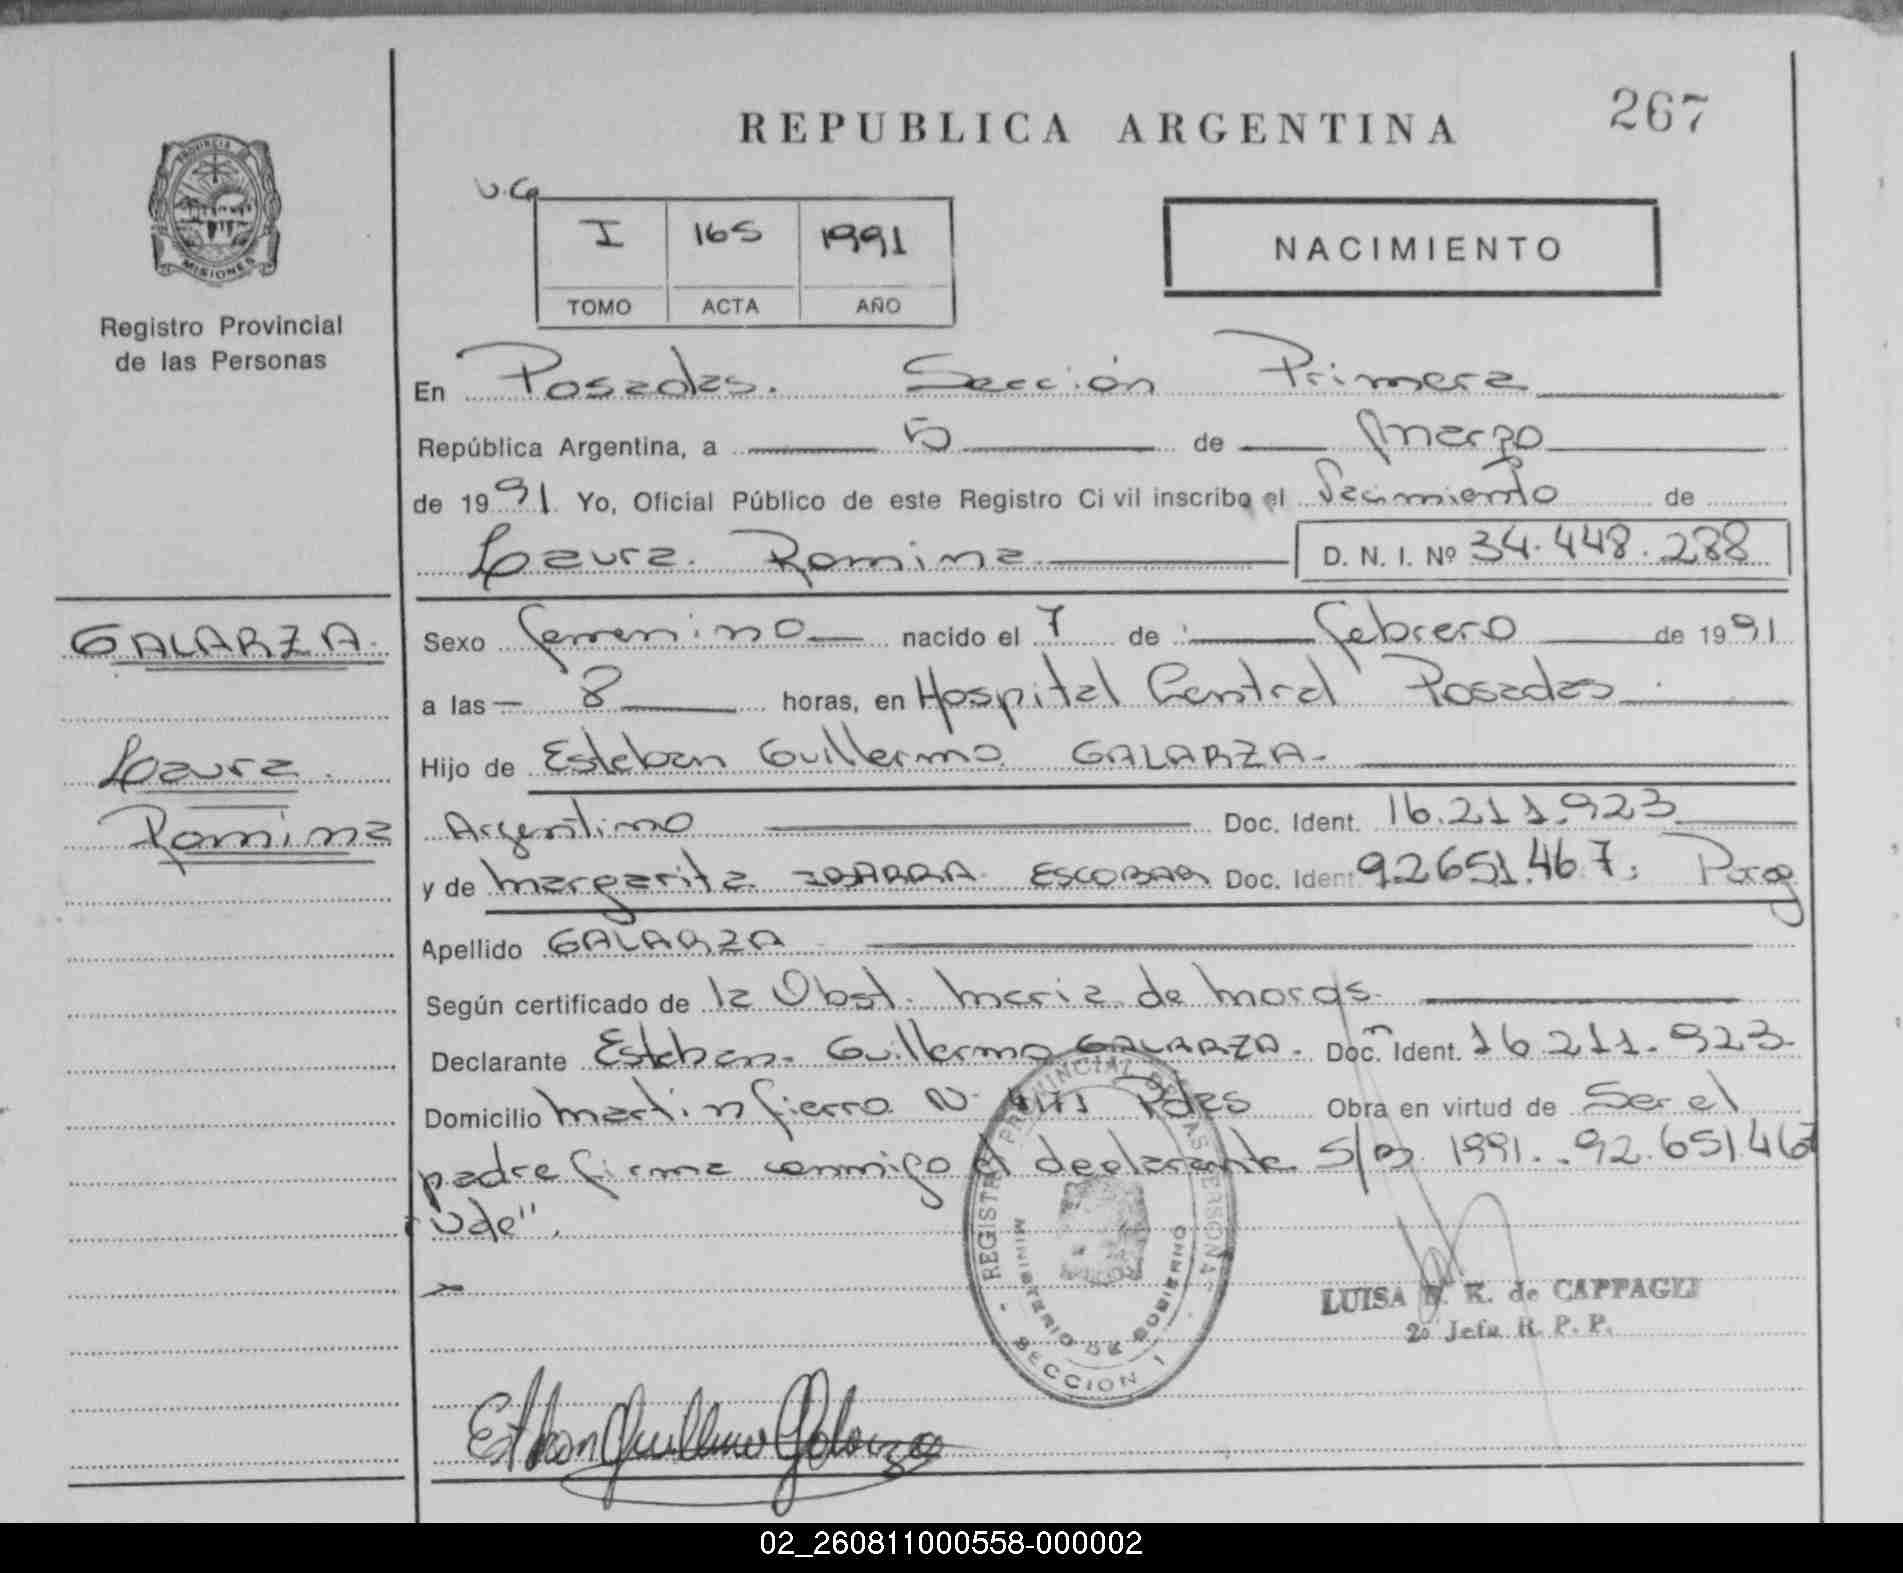 267
REPUBLICA ARGENTINA
PROVINCIA DE
MISIONES
Registro Provincial
de las Personas
U.G
I 165 1991
TOMO ACTA AÑO
NACIMIENTO
En Posadas. Sección Primera
República Argentina, a 5 de marzo
de 1991 Yo, Oficial Público de este Registro Civil inscribo el Nacimiento de
Laura Romina D. N. I. Nº 34.448.288
GALARZA.
Laura
Romina
Sexo femenino nacido el 7 de febrero de 1991
a las 8 horas, en Hospital Central Posadas
Hijo de Esteban Guillermo GALARZA
Argentino Doc. Ident. 16.211.923
y de Margarita IBARRA ESCOBAR Doc. Ident 92651.467. Parag
Apellido GALARZA
Según certificado de la Obst. Maria de Moras
Declarante Esteban Guillermo GALARZA. Doc. Ident. 16 211.923.
Domicilio Martin fierro N. Pdas Obra en virtud de Ser el
padre firma conmigo el declarante S/B. 1991. .92.651.467
Vde".
REGISTRO PROVINCIAL DE LAS PERSONAS
MINISTERIO DE GOBIERNO
SECCION 1
LUISA K. de CAPPAGLI
2º Jefa R. P. P.
Esteban Guillermo Galarza
02_260811000558-000002